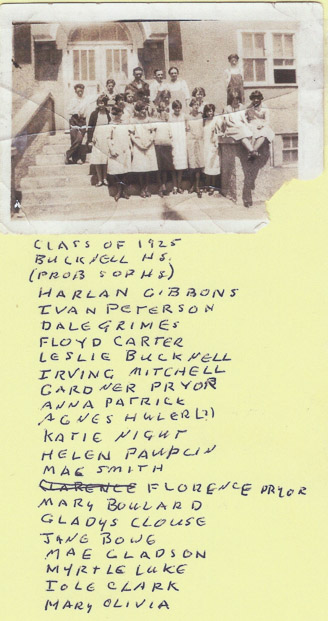 CLASS OF 1925
BUCKNELL HS.
(PROB SOPHS)
HARLAN GIBBONS
IVAN PETERSON
DALE GRIMES
FLOYD CARTER
LESLIE BUCKNELL
IRVING MITCHELL
GARDNER PRYOR
ANNA PATRICK
AGNES HULER(?)
KATIE NIGHT
HELEN PAUPLIN
MAE SMITH
CLARENCE FLORENCE PRYOR
MARY BOULARD
GLADYS CLOUSE
JANE BOWE
MAE GLADSON
MYRTLE LUKE
IOLE CLARK
MARY OLIVIA